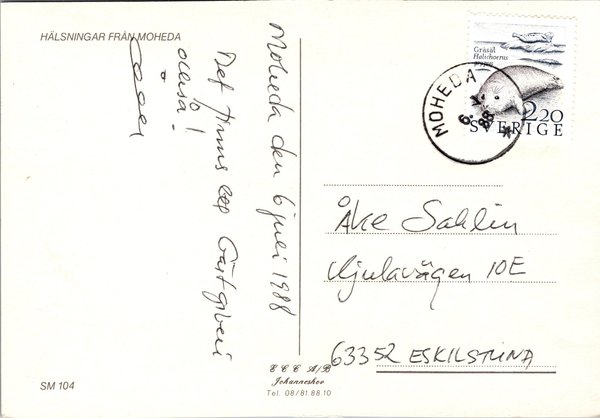 HÄLSNINGAR FRÅN MOHEDA
Moheda den 6 juli 1988
Det finns
Gästgiveri
också!
Gråsäl
Halichoerus
grypus
2.20
SVERIGE
MOHEDA
6. 7.
88
Åke Sahlin
Kjulavägen 10E
63352 ESKILSTUNA
E C C A/B
Johanneshov
Tel. 08/81.88.10
SM 104